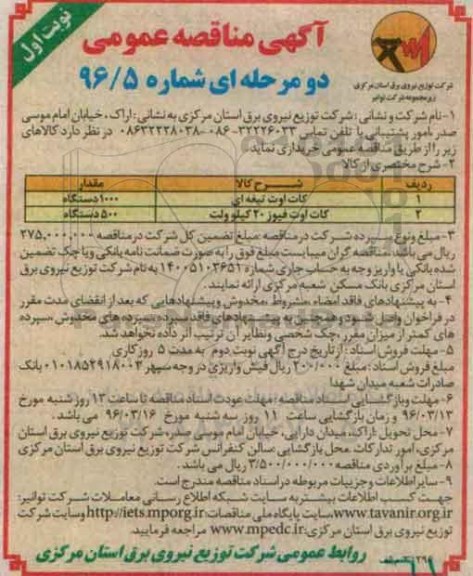 نوبت اول
آگهی مناقصه عمومی
دو مرحله ای شماره ۹۶/۵
شرکت توزیع نیروی برق استان مرکزی
زیرمجموعه شرکت توانیر
۱-نام شرکت و نشانی : شرکت توزیع نیروی برق استان مرکزی به نشانی : اراک ، خیابان امام موسی
صدر ،امور پشتیبانی یا تلفن تماس ۳۲۲۲۶۰۳۳-۰۸۶ -۰۸۶۳۲۲۳۸۰۳۸ در نظر دارد کالاهای
زیر را از طریق مناقصه عمومی خریداری نماید.
۲- شرح مختصری از کالا
ردیف شرح کالا مقدار
۱ کات اوت تیغه ای ۱۰۰۰ دستگاه
۲ کات اوت فیوز ۲۰ کیلو ولت ۵۰۰ دستگاه
۳-مبلغ ونوع سپرده شرکت در مناقصه :مبلغ تضمین کل شرکت در مناقصه ۲۷۵,۰۰۰,۰۰۰
ریال می باشد. مناقصه گران میبایست مبلغ فوق را به صورت ضمانت نامه بانکی ویا چک تضمین
شده بانکی یا واریز وجه به حساب جاری شماره ۱۴۰۰۵۱۰۳۶۵۱ به نام شرکت توزیع نیروی برق
استان مرکزی بانک مسکن شعبه مرکزی ارائه نمایند.
۴- به پیشنهادهای فاقد امضاء ،مشروط ،مخدوش و پیشنهادهایی که بعد از انقضای مدت مقرر
در فراخوان واصل شود و همچنین به پیشنهادهای فاقد سپرده ،سپرده های مخدوش ،سپرده
های کمتر از میزان مقرر ،چک شخصی ونظایر آن ترتیب اثر داده نخواهد شد.
۵- مهلت فروش اسناد : از تاریخ درج آگهی نوبت دوم به مدت ۵ روز کاری
مبلغ فروش اسناد : مبلغ ۲۰۰/۰۰۰ ریال فیش واریزی در وجه سپهر ۰۱۰۱۸۵۲۹۱۸۰۰۳ بانک
صادرات شعبه میدان شهدا
۶- مهلت وبازگشایی اسناد مناقصه :مهلت عودت اسناد مناقصه تا ساعت ۱۳ روز شنبه مورخ
۹۶/۰۳/۱۳ و زمان بازگشایی ساعت ۱۱ روز سه شنبه مورخ ۹۶/۰۳/۱۶ می باشد.
۷- محل تحویل :اراک، میدان دارایی، خیابان امام موسی صدر، شرکت توزیع نیروی برق استان
مرکزی، امور تدارکات .محل بازگشایی :سالن کنفرانس شرکت توزیع نیروی برق استان مرکزی
۸- مبلغ برآوردی مناقصه ۳/۵۰۰/۰۰۰/۰۰۰ ریال می باشد.
۹- سایر اطلاعات وجزییات مربوطه در اسناد مناقصه مندرج است.
جهت کسب اطلاعات بیشتر به سایت شبکه اطلاع رسانی معاملات شرکت توانیر:
www.tavanir.org.ir،سایت پایگاه ملی مناقصات:http://iets.mporg.ir وسایت شرکت
توزیع نیروی برق استان مرکزی:www.mpedc.ir مراجعه فرمایید.
روابط عمومی شرکت توزیع نیروی برق استان مرکزی